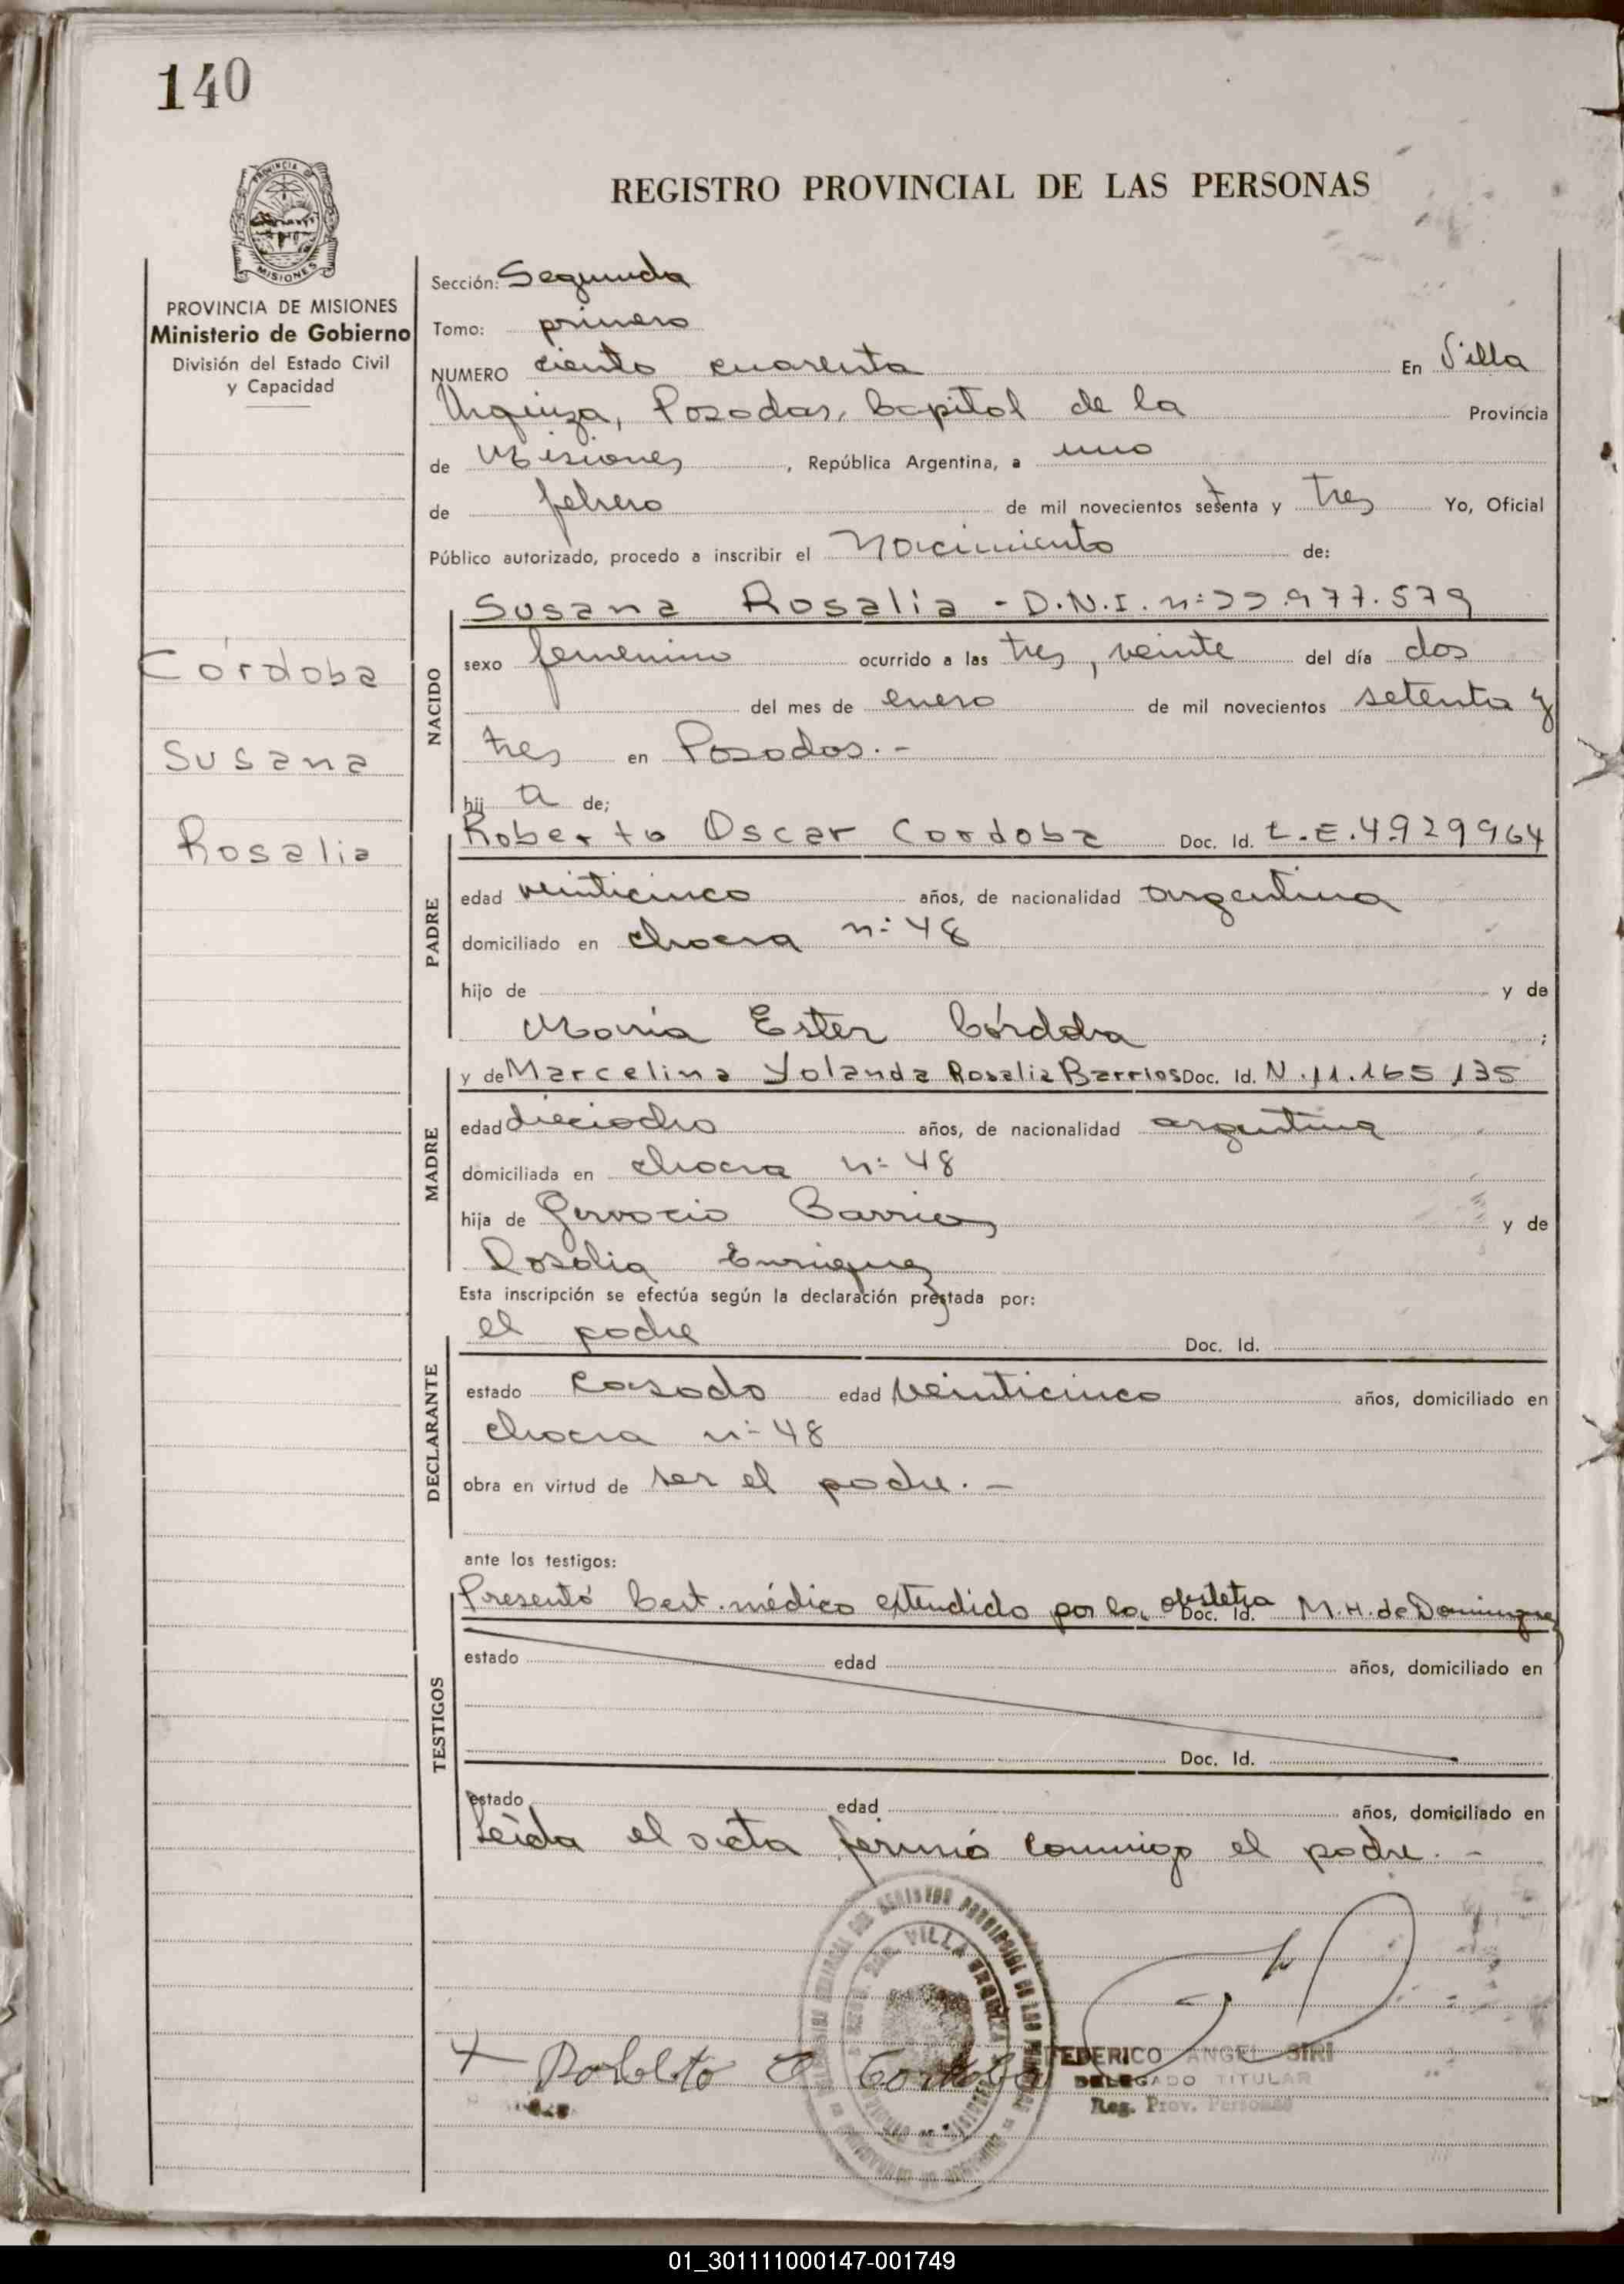 140
PROVINCIA
MISIONES
REGISTRO PROVINCIAL DE LAS PERSONAS
PROVINCIA DE MISIONES
Ministerio de Gobierno
División del Estado Civil
y Capacidad
Córdoba
Susana
Rosalia
Sección: Segunda
Tomo: primero
NUMERO ciento cuarenta En Villa
Urquiza, Posadas, Capital de la Provincia
de Misiones, República Argentina, a uno
de febrero de mil novecientos setenta y tres Yo, Oficial
Público autorizado, procedo a inscribir el Nacimiento de:
NACIDO
Susana Rosalia - D.N.I. nº 22.977.579
sexo femenino ocurrido a las tres, veinte del día dos
del mes de enero de mil novecientos setenta y
tres en Posadas. -
hij a de;
PADRE
Roberto Oscar Cordoba Doc. Id. L.E. 4.929964
edad veinticinco años, de nacionalidad argentina
domiciliado en chacra nº 48
hijo de y de
María Ester Córdoba ;
MADRE
y de Marcelina Yolanda Rosalia Barrios Doc. Id. N. 11.165,135
edad dieciocho años, de nacionalidad argentina
domiciliada en chacra nº 48
hija de Gervacio Barrios y de
Rosalia Enriquez
Esta inscripción se efectúa según la declaración prestada por:
DECLARANTE
el padre Doc. Id.
estado casado edad veinticinco años, domiciliado en
chacra nº 48
obra en virtud de ser el padre. -
ante los testigos:
TESTIGOS
Presentó Cert. médico extendido por la obstetra Doc. Id. M.H. de Dominguez
estado edad años, domiciliado en
Doc. Id.
estado edad años, domiciliado en
Leída el acta firmó conmigo el padre. -
VILLA URQUIZA
Roberto O Cordoba
FEDERICO ANGEL SIRI
DELEGADO TITULAR
Reg. Prov. Personas
01_301111000147-001749